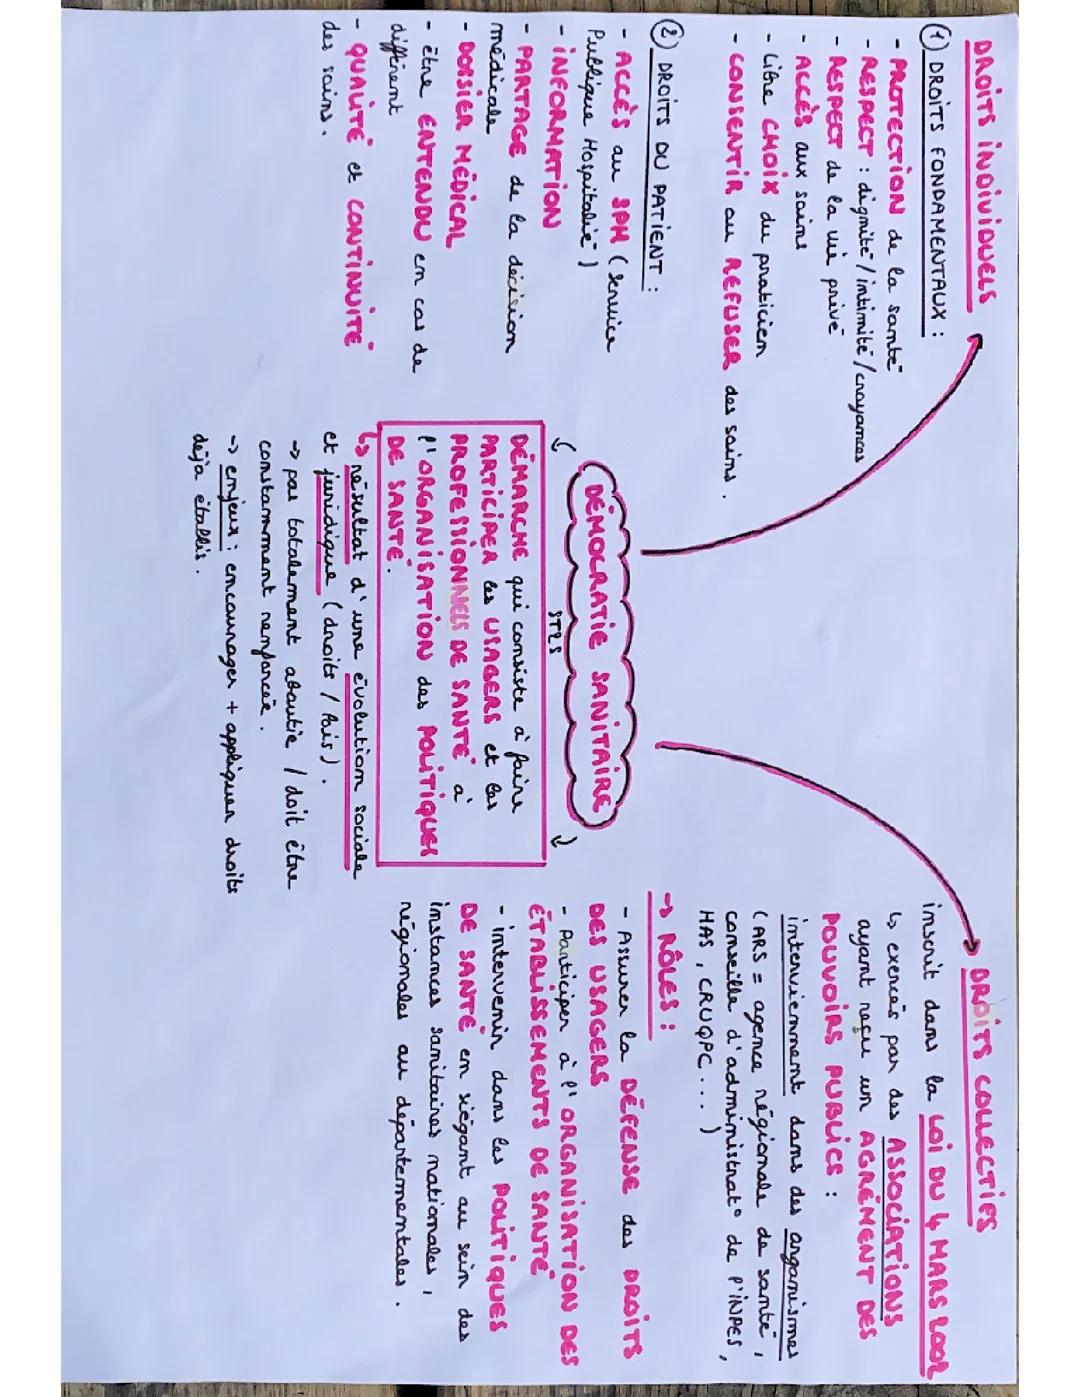 DROITS INDIVIDUELS
① DROITS FONDAMENTAUX :
- PROTECTION de la santé
- RESPECT : dignité / intimité / croyances
- RESPECT de la vie privé
- ACCÈS aux soins
- Libre CHOIX du praticien
- CONSENTIR au REFUSER des soins.
② DROITS DU PATIENT :
- ACCÈS au SPH ( Service
Publique Hospitalié )
- INFORMATION
- PARTAGE de la décision
médicale
- DOSSIER MÉDICAL
- être ENTENDU en cas de
différent
- QUALITÉ et CONTINUITÉ
des soins.
DÉMOCRATIE SANITAIRE
ST2S
DÉMARCHE qui consiste à faire
PARTICIPER les USAGERS et les
PROFESSIONNELS DE SANTÉ à
l'ORGANISATION des POLITIQUES
DE SANTÉ.
↳ résultat d'une évolution sociale
et juridique ( droits / lois ).
→ pas totalement aboutie / doit être
constamment renforcée.
→ enjeux : encourager + appliquer droits
déjà établis.
DROITS COLLECTIFS
inscrit dans la LOI DU 4 MARS 2002
↳ exercés par des ASSOCIATIONS
ayant reçu un AGRÉMENT DES
POUVOIRS PUBLICS :
interviennent dans des organismes
( ARS = agence régionale de santé,
conseille d'administrat° de l'INPES,
HAS, CRUQPC... )
→ RÔLES :
- Assurer la DÉFENSE des DROITS
DES USAGERS
- Participer à l'ORGANISATION DES
ÉTABLISSEMENTS DE SANTÉ
- intervenir dans les POLITIQUES
DE SANTÉ en siégant au sein des
instances sanitaires nationales,
régionales au départementales.